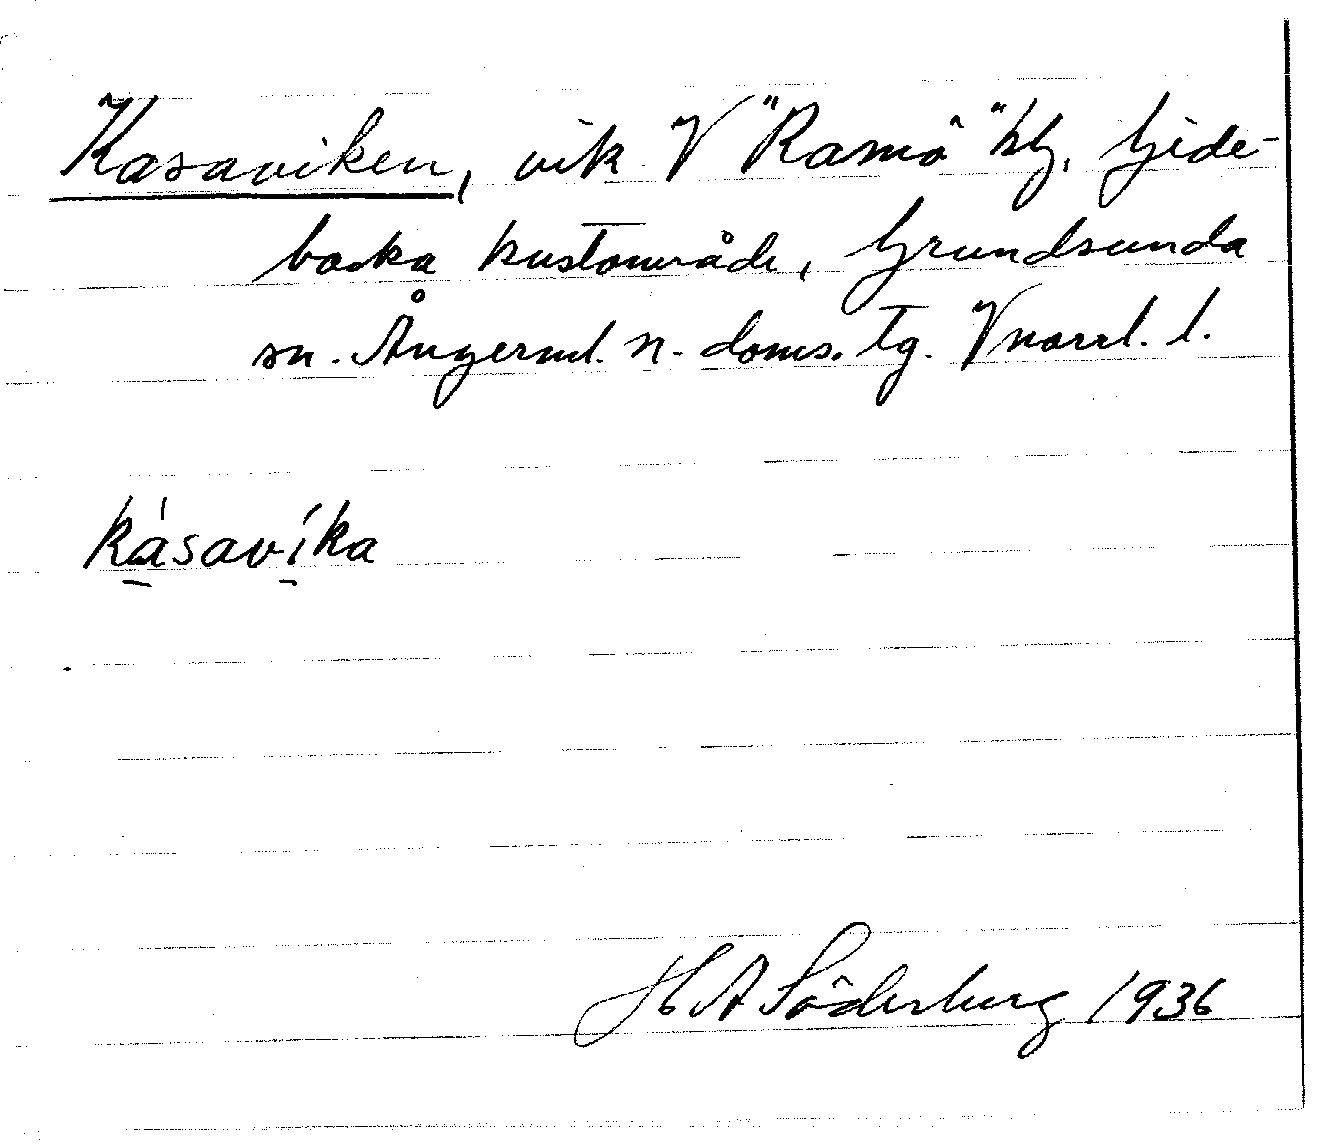 Kasaviken, vik V "Ramö" hlg. Gide-
backa kustområde, Grundsunda
sn. Ångerml. n. doms. tg. Vnorrl. l.
kásavíka
H A Söderberg 1936